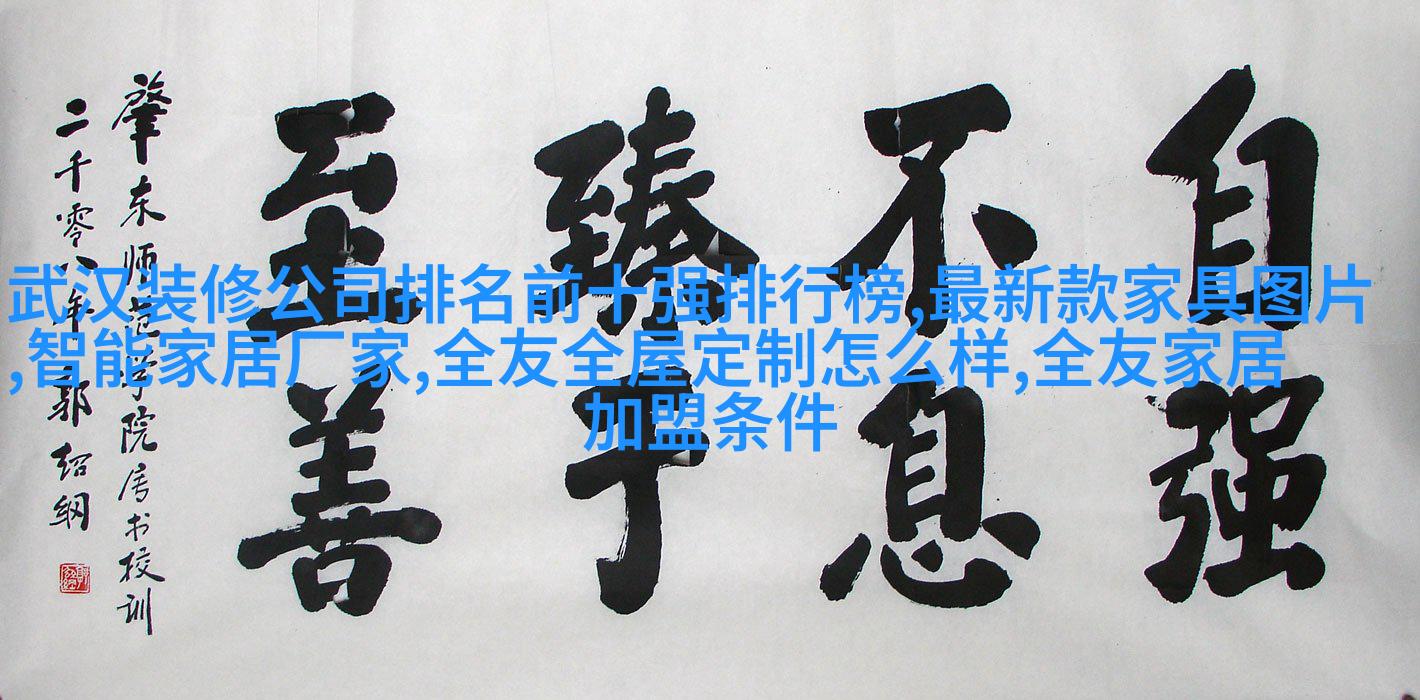 自强
不息
臻于
至善
肇东师范学院书校训
二千零八年郭绍纲
武汉装修公司排名前十强排行榜,最新款家具图片
,智能家居厂家,全友全屋定制怎么样,全友家居
加盟条件